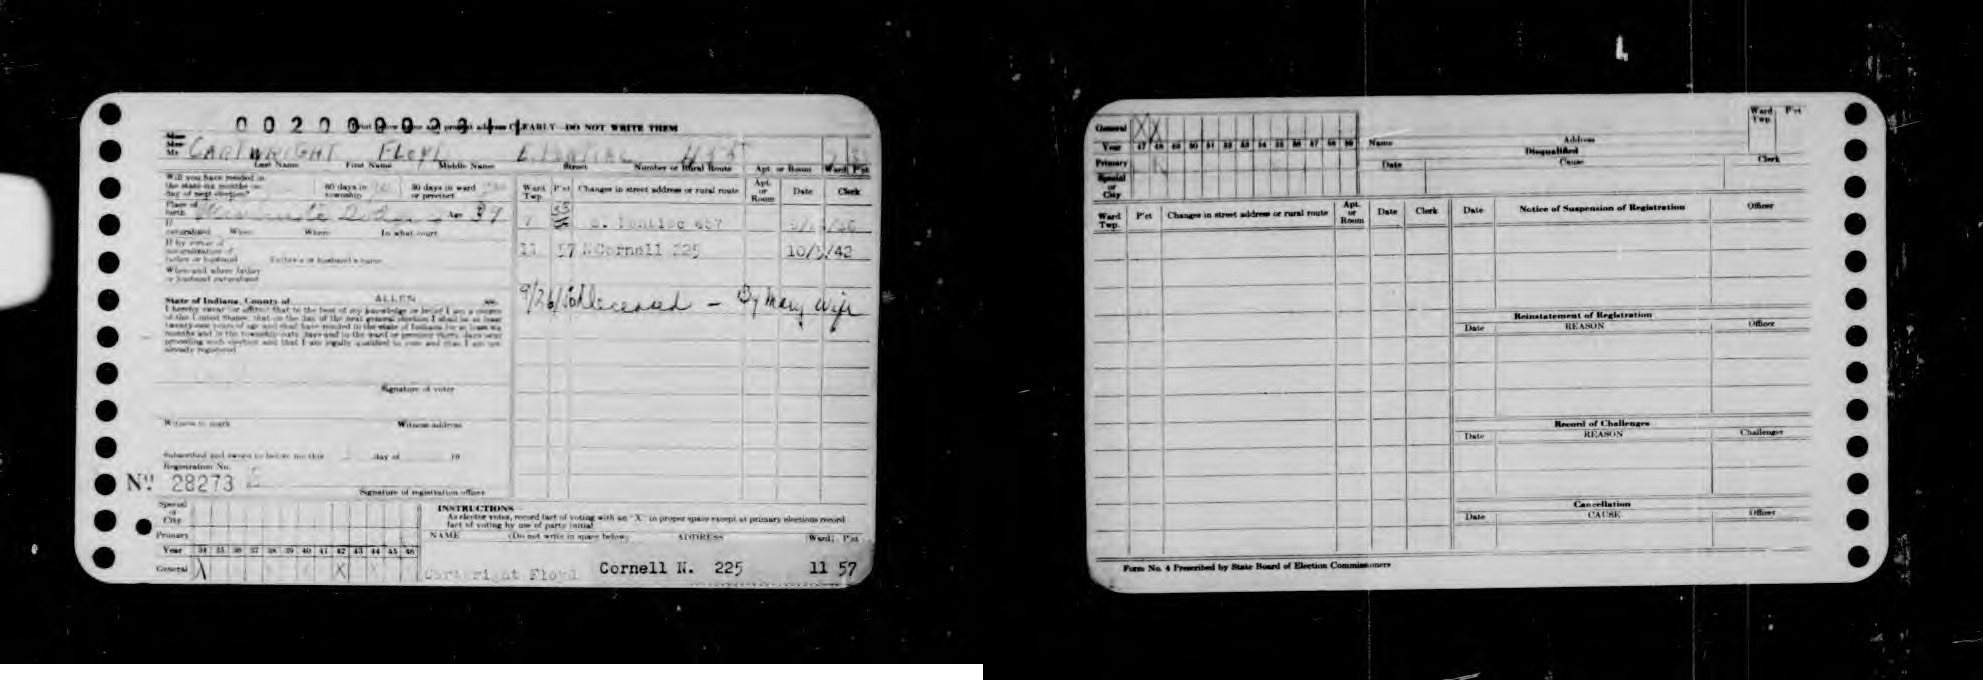 Print Above Name and present address CLEARLY—DO NOT WRITE THEM
CARTWRIGHT FLOYD E. PONTIAC
Last Name First Name Middle Name Street Number or Rural Route Apt or Room Ward P'ct
Will you have resided in
the state six months on
day of next election? 60 days in township 30 days in ward or precinct
Place of birth Age 39
If naturalized When Where In what court
If by virtue of
naturalization of
father or husband Father's or husband's name
When and where father
or husband naturalized
State of Indiana, County of ALLEN ss.
I hereby swear (or affirm) that to the best of my knowledge or belief I am a citizen
of the United States; that on the day of the next general election I shall be at least
twenty-one years of age and shall have resided in the state of Indiana for at least six
months and in the township sixty days and in the ward or precinct thirty days next
preceding such election and that I am legally qualified to vote and that I am not
already registered.
Signature of voter
Witness to mark Witness address
Subscribed and sworn to before me this day of 19
Registration No.
No. 28273
Signature of registration officer
Ward Twp. P'ct Changes in street address or rural route Apt. or Room Date Clerk
7 55 E. Pontiac 457
11 57 N Cornell 225 10/ /42
9/26/ deceased — By Mary Wife
Special or City
Primary
Year 34 35 36 37 38 39 40 41 42 43 44 45 46
General X X
INSTRUCTIONS
As elector votes, record fact of voting with an "X" in proper space except at primary elections record
fact of voting by use of party initial
NAME (Do not write in space below) ADDRESS Ward P'ct
Cartwright Floyd Cornell N. 225 11 57
General X X
Year 47 48 49 50 51 52 53 54 55 56 57 58 59
Primary
Special or City
Name Address Ward Twp. P'ct
Disqualified
Date Cause Clerk
Ward Twp. P'ct Changes in street address or rural route Apt. or Room Date Clerk
Date Notice of Suspension of Registration Officer
Reinstatement of Registration
Date REASON Officer
Record of Challenges
Date REASON Challenger
Cancellation
Date CAUSE Officer
Form No. 4 Prescribed by State Board of Election Commissioners